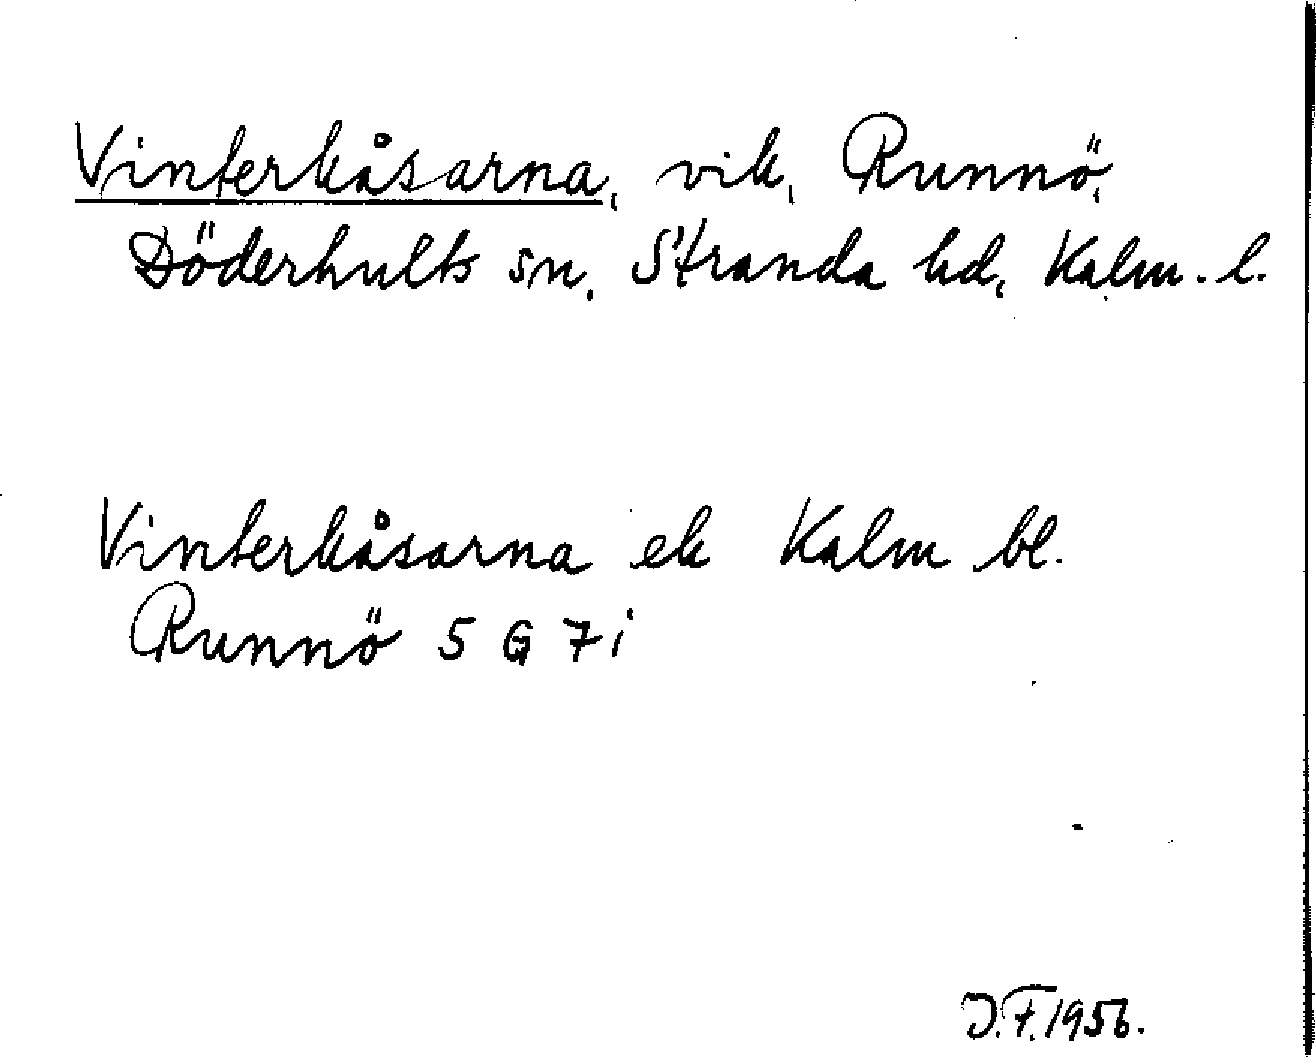 Vinterkåsarna, vik, Runnö,
Döderhults sn, Stranda hd, Kalm. l.
Vinterkåsarna ek Kalm bl.
Runnö 5 G 7 i
J.F. 1956.